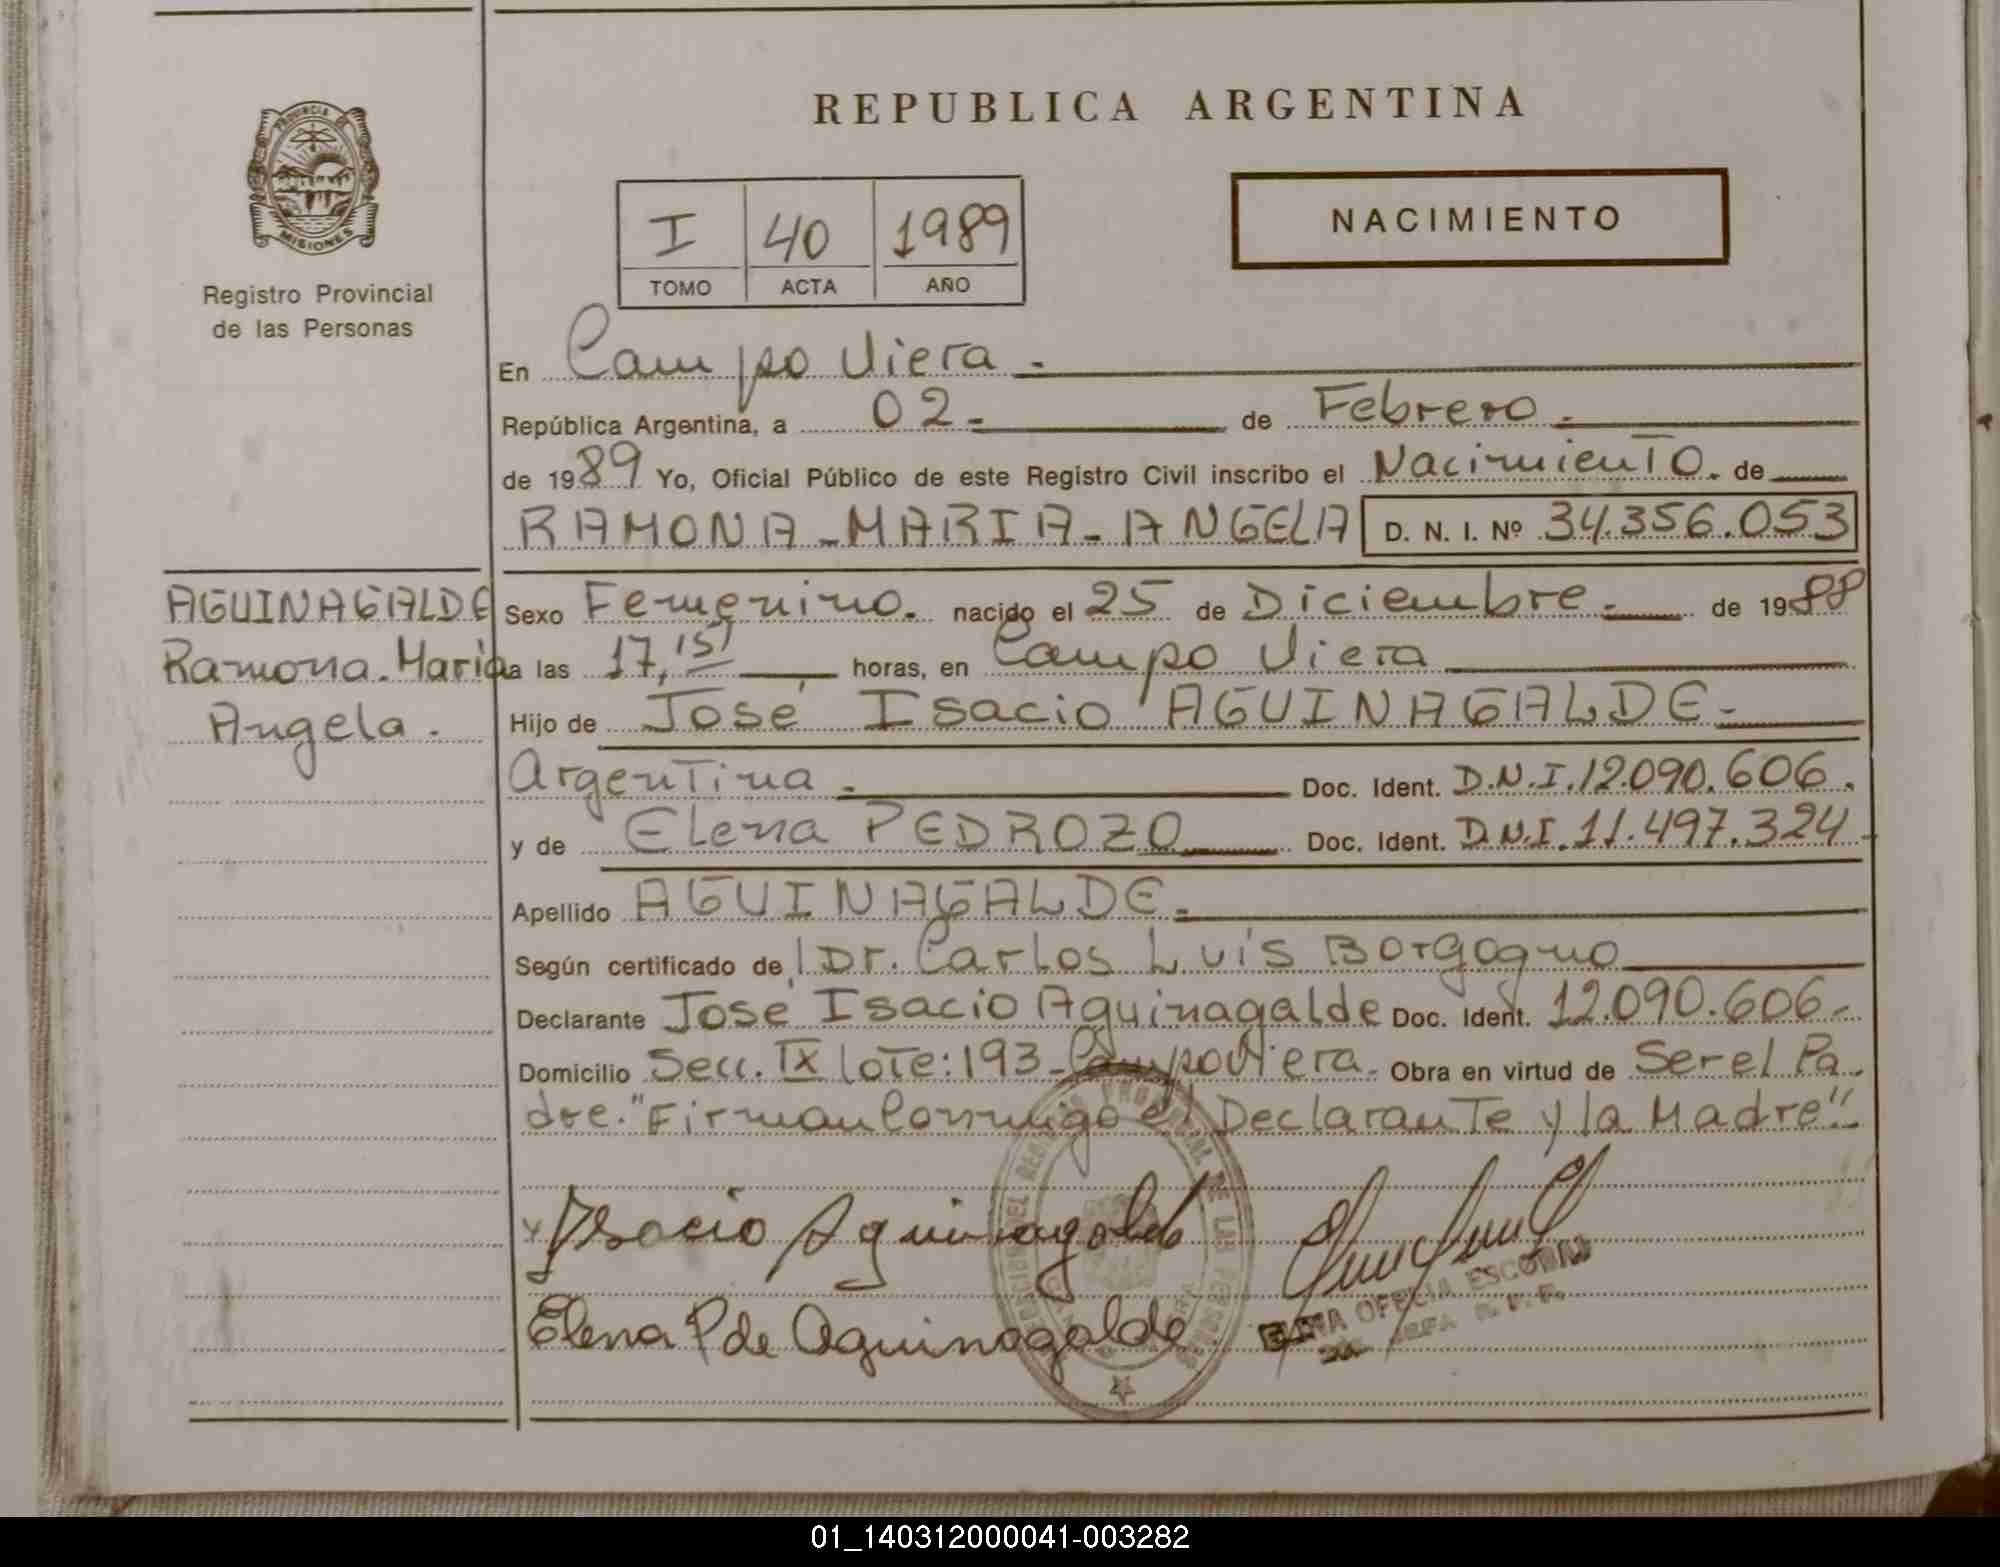 REPUBLICA ARGENTINA
PROVINCIA DE
MISIONES
Registro Provincial
de las Personas
I 40 1989
TOMO ACTA AÑO
NACIMIENTO
En Campo Viera.-
República Argentina, a 02.- de Febrero.-
de 1989 Yo, Oficial Público de este Registro Civil inscribo el Nacimiento. de
RAMONA-MARIA-ANGELA D. N. I. Nº 34.356.053
AGUINAGALDE
Ramona. Maria
Angela.
Sexo Femenino. nacido el 25 de Diciembre.- de 1988
a las 17,15' horas, en Campo Viera
Hijo de José Isacio AGUINAGALDE.-
Argentina.- Doc. Ident. D.N.I.12.090.606.
y de Elena PEDROZO Doc. Ident. D.N.I.11.497.324-
Apellido AGUINAGALDE.-
Según certificado de Dr. Carlos Luis Borgogno
Declarante José Isacio Aguinagalde Doc. Ident. 12.090.606.-
Domicilio Secc. IX Lote: 193-Campo Viera. Obra en virtud de Ser el Pa-
dre. "Firman Conmigo el Declarante y la Madre"
Isacio Aguinagalde
Elena P de Aguinagalde
OFELIA ESCOBAR
JEFA R. P. P.
01_140312000041-003282